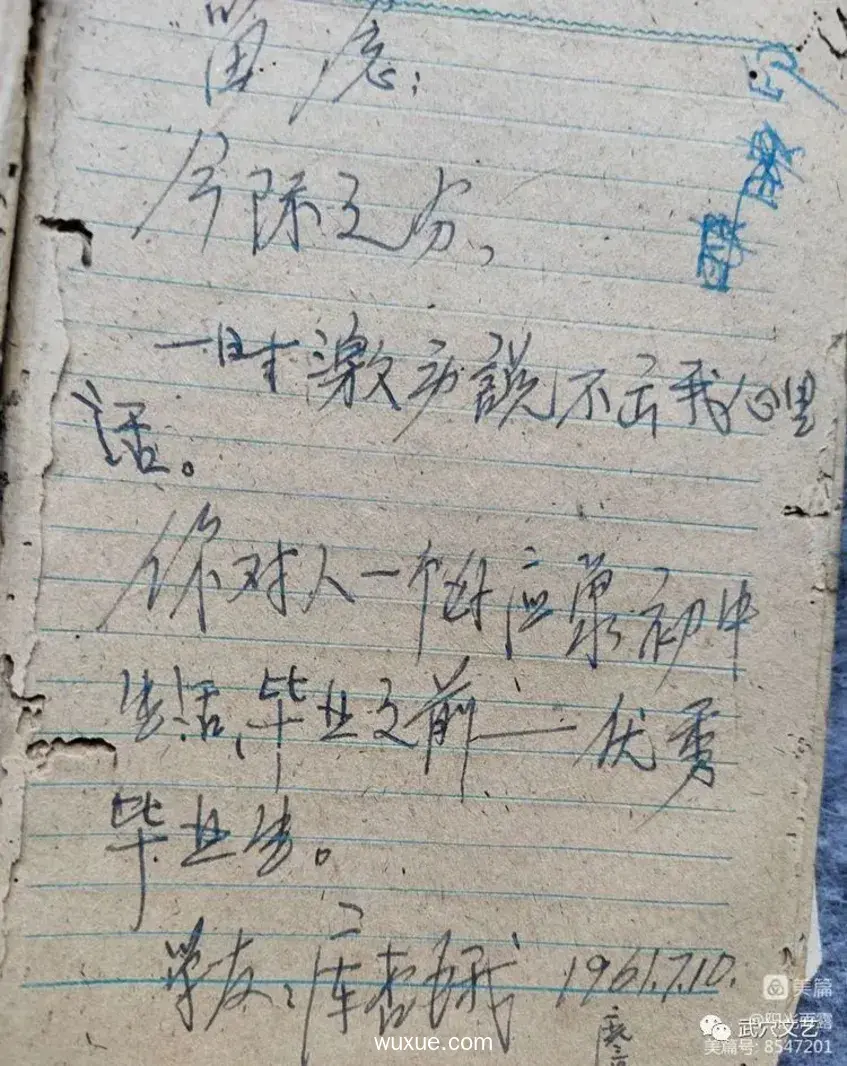 留念：
今际之分、
一时激动說不出我心里
话。
你对人一个好应象初中
生活、毕业之前——优秀
毕业生。
学友： 1961.7.10.
美篇
@阳光雨露
武穴文艺
美篇号: 8547201
wuxue.com